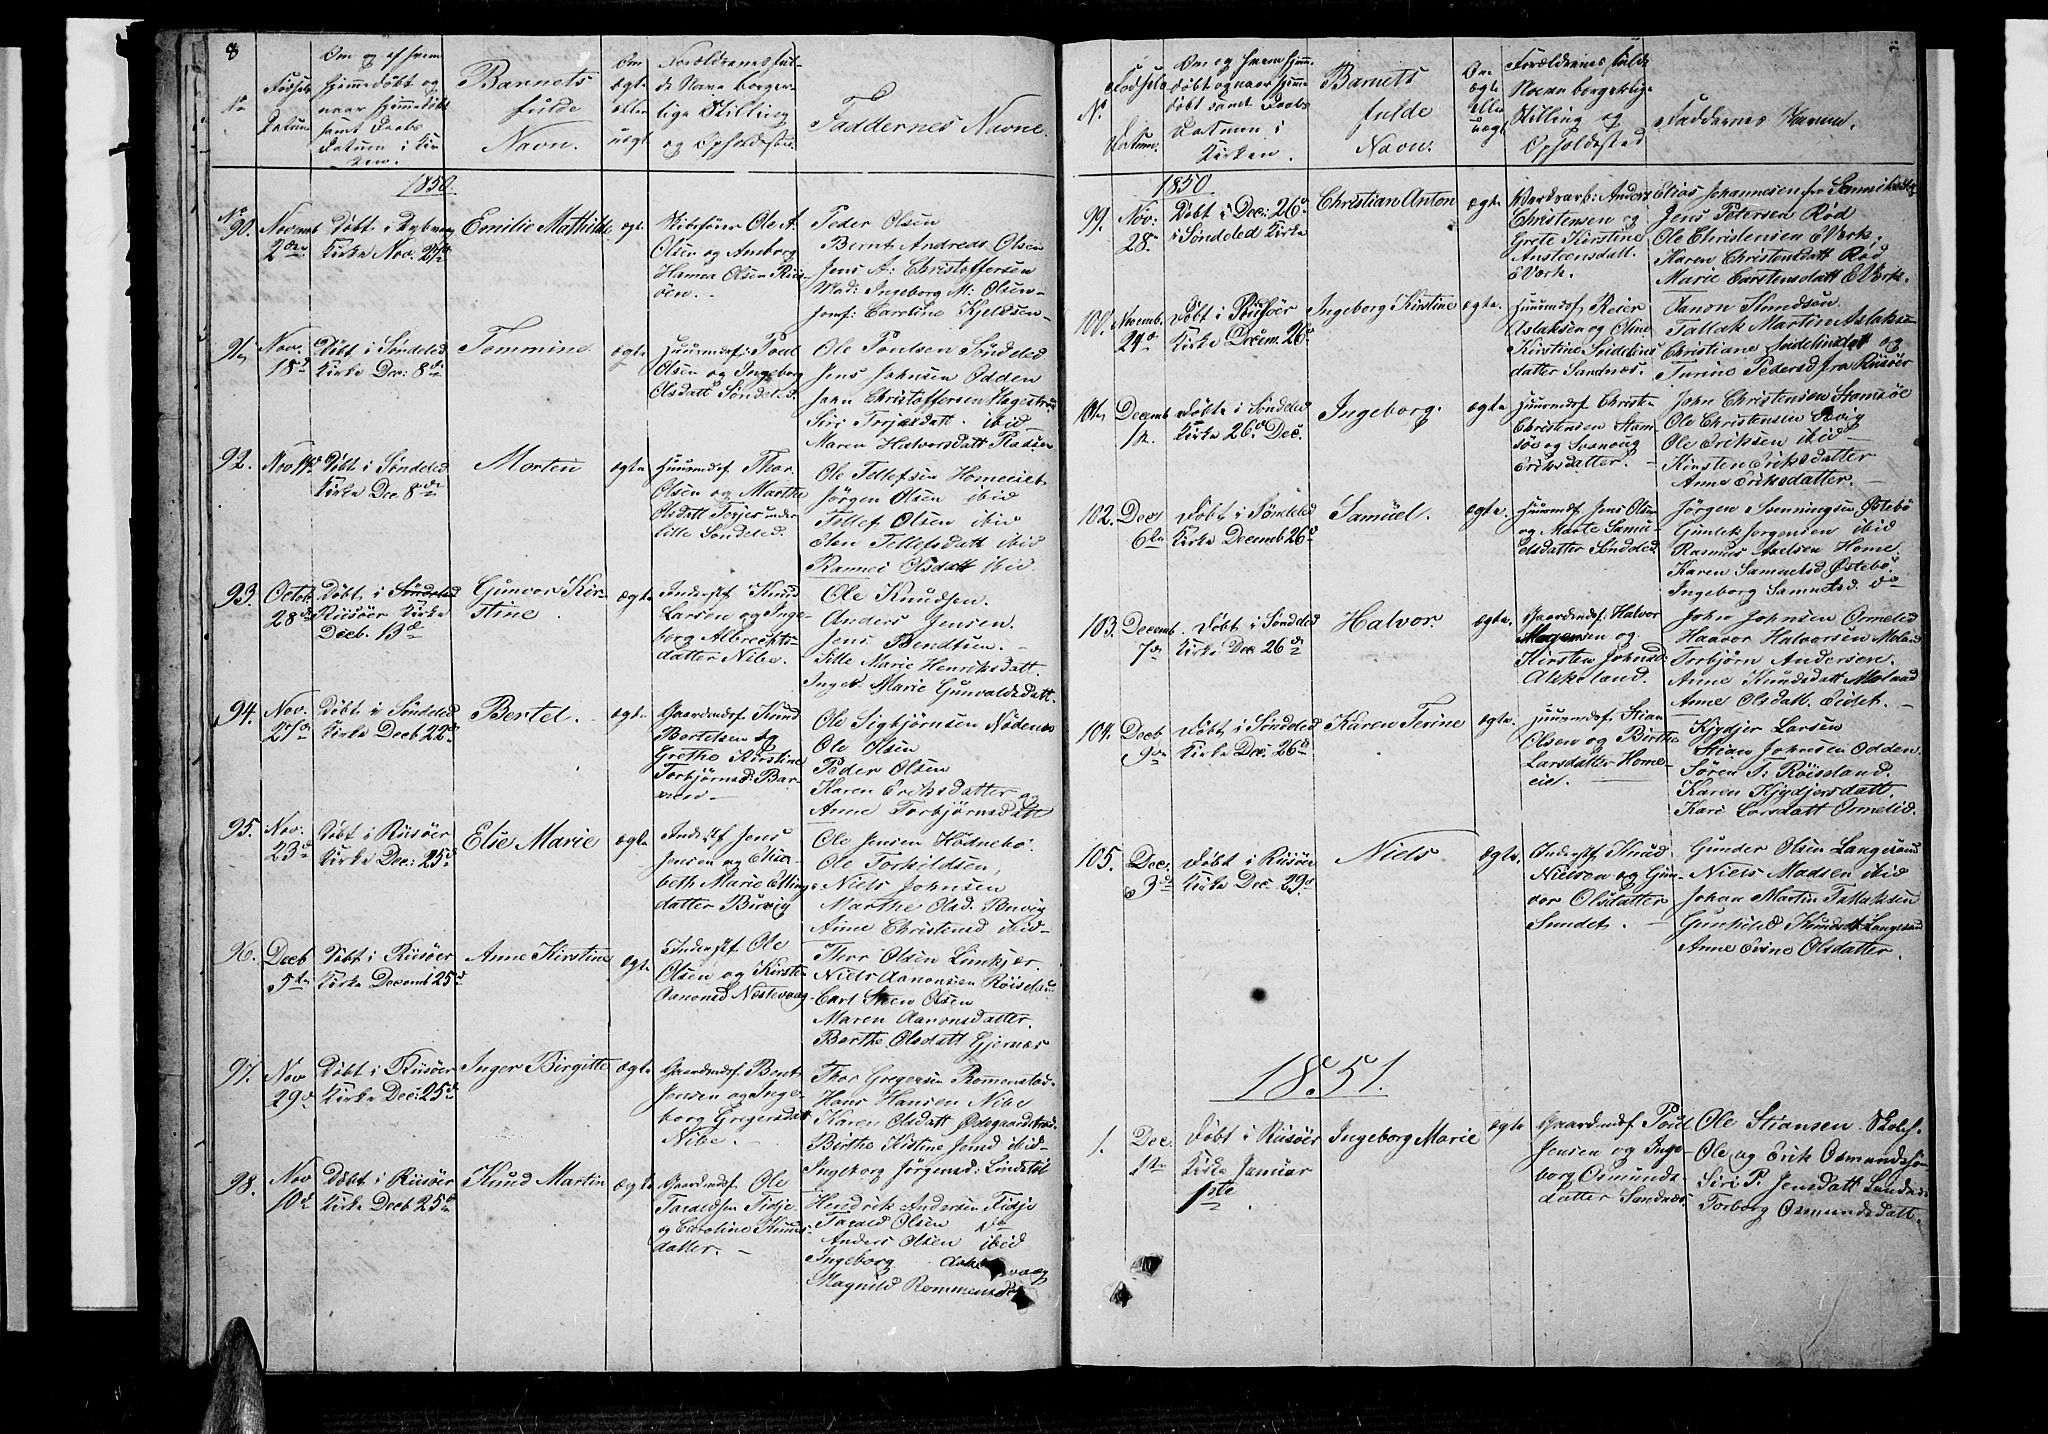 8
No
Fødsels
Datum
Om og af hvem
hjemmedøbt og
naar hjemmedøbt
samt Daabs
Datum i Kir
ken.
Barnets
fulde
Navn.
Om
ægte
eller
uægte
Forældrenes ful-
de Navn borger-
lige Stilling
og Opholdssted
Faddernes Navne.
1850.
No
90.
Novemb
2den
Døbt i
Kirke Nov.
Emilie Mathilde
ægte
Ole A.
Olsen og
Hanna Olsen Riis-
øen.
Peder Olsen
Bernt Andreas Olsen
Jens A: Christoffersen
Mad: Ingeborg M: Olsen
Jomf: Caroline Kjeldsen
91
Nov.
18d
Døbt i Søndeled
Kirke Dec: 8de
Tommine
ægte
Huusmdsf: Poul
Olsen og Ingeborg
Olsdatt Søndeled.
Ole Poulsen Søndeled
Jens Johnsen Odden
John Christoffersen
Siri Terjesdatt. ibid
Maren Halvorsdatt
92.
Nov
Døbt i Søndeled
Kirke Dec 8de
Morten
ægte
Huusmdsf Thor
Olsen og Marthe
Olsdatt under
lille Søndeled.
Ole Tellefsen Homeiet
Jørgen Olsen ibid
Tellef Olsen ibid
Tellefsdatt ibid
Olsdatt ibid
93.
Octob
28d
Døbt i Søndeled
Riisøer Kirke
Deeb. 13d
Gunvor Kir-
stine.
ægte
Inderstf Knud
Larsen og Inge-
borg Albrechts-
datter Nibe.
Ole Knudsen.
Anders Jensen.
Jens Bendtsen.
Sille Marie Henriksdatt.
Inger Marie Gunvaldsdatt.
94.
Nov.
27d
Døbt i Søndeled
Kirke Deeb 22d
Bertel.
ægte
Gaardmdsf: Knud
Bertelsen og
Grethe Kirstine
Torbjørnsd: Bar-
men
Ole Sigbjørnsen
Ole Olsen
Peder Olsen
Karen Eriksdatter og
Anne Torbjørnsdatt
95.
Nov.
23d
Døbt i Riisøer
Kirke Dec: 25d
Else Marie
ægte
Inderstf Jens
Jensen og Elisa-
beth Marie Elling
datter Buvig
Ole Jensen Hødnebø.
Ole Torkildsen,
Niels Johnsen
Marthe Olsd. Buvig
Anne Christensd ibid
96.
Deeb
5te
Døbt i Riisøer
Kirke Decemb 25d
Anne Kirstine
ægte
Inderstf Ole
Olsen og Kirsten
Aanonsd Nestevaag
Thor Olsen Lunkjær.
Niels Aanonsen
Carl Sten Olsen
Maren Aanonsdatter.
Berthe Olsdatt Gjernæs
97.
Nov
29d
Døbt i Riisøer
Kirke Dec: 25d
Inger Birgitte
ægte
Gaardmdsf. Bent
Jensen og Inge-
borg Gregersdatt
Nibe.
Thor Gregersen
Hans Hansen Nibe
Karen Olsdatt
Birthe Kistine Jensd ibid
Ingeborg Jørgensd: Lindstøl
98.
Nov
10d
Døbt i Riisøer
Kirke Deeb 25d
Knud Martin
ægte
Gaardmdsf. Ole
Taraldsen Fidje
og Caroline Knuds-
datter.
Hendrik Andersen Fidje
Tarald Olsen do
Anders Olsen ibid
Ingeborg
Magnild
No
Fødsels
Datum.
Om og hvem hjem-
døbt og naar hjemme
døbt samt Daabs
Datum i
Kirken.
Barnets
fulde
Navn.
Om
ægte
eller
uægt
Forældrenes fulde
Navn borgerlige
Stilling og
Opholdssted
Faddernes Navne.
1850
99.
Nov.
28de
Døbt i Dec: 26d
i Søndeled Kirke
Christian Anton
ægte
Anders
Christensen og
Grete Kirstine
Anstensdatt.
EVærk.
Elias Johannesen fra
Jens Petersen Rød
Ole Christensen EVærk.
Karen Christensdatt Rød
Marie Carstensdatt EVærk.
100.
Novemb.
24d
Døbt i Riisøer
Kirke Decem. 26d
Ingeborg Kirstine
ægte.
Huusmdsf Reier
Aslaksen og Oline
Kirstine
datter Sandnæs.
Aanon Knudsen
Tallak Martin Aslaksen
Christiane og
Turine Pedersd fra Riisøer
101
Decemb
Døbt i Søndeled
Kirke 26d Dec.
Ingeborg.
ægte
Huusmdsf Christen
Christensen Stam-
søe og
Eriksdatter.
John Christensen Stamsøe
Ole Christensen
Ole Eriksen ibid
Kirsten Eriksdatter
Anne Eriksdatter.
102.
Dec
6te
Døbt i Søndeled
Kirke Decemb 26d
Samuel.
ægte
Huusmdsf. Jens Olsen
og Marte Samu-
elsdatter Søndeled
Jørgen Svenningsen Østebø
Gunlek Jørgensen ibid
Rasmus Axelsen Home
Karen Samuelsd Østebø
Ingeborg Samuelsd. do
103.
Decemb.
7de
Døbt i Søndeled
Kirke Dec 26d
Halvor.
ægte.
Gaardmdsf: Halvor
Mogensen og
Kirsten Johnsd
John Johnsen Ormelid
Haavor Halvorsen Moland
Torbjørn Andersen.
Anne Knudsdatt Moland
Anne Olsdatt. Eidet.
104.
Deeb
9de
Døbt i Søndeled
Kirke Dec: 26d
Karen Terine
ægte.
Huusmdsf. Stian
Olsen og Birthe
Larsdatter Home-
eie.
Kjydjer Larsen
Stian Johnsen Odden
Søren T: Røisland.
Karen Kjydjersdatt.
Kari Larsdatt Ormelid.
105.
Dec.
3d
Døbt i Riisøer
Kirke Dec 29d
Niels
ægte.
Inderstf Knud
Nielsen og Gun-
vor Olsdatter
Sundet.
Gunder Olsen Langesund
Niels Madsen ibid
Johan Martin Tallaksen
Gunhild Knudsdatt Langesund
Anne Evine Olsdatter.
1851.
1.
Dec
1ste
Døbt i Riisøer
Kirke Januar
1ste
Ingeborg Marie
ægte
Gaardmdsf Poul
Jensen og Inge-
borg Osmunds-
datter Sandnæs
Ole Stiansen
Ole og Erik Osmundssøn
Siri P. Jensdatt Sandnæs
Torborg Osmundsdatt.